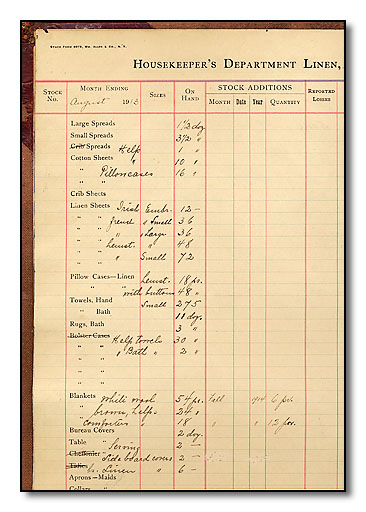 HOUSEKEEPER'S DEPARTMENT LINEN,
STOCK No. MONTH ENDING SIZES ON HAND STOCK ADDITIONS REPORTED LOSSES
August 1913 MONTH Date Year QUANTITY
Large Spreads 1½ doz
Small Spreads 3½ "
Crib Spreads Help 1 "
Cotton Sheets " 10 "
" Pillowcases 16 "
Crib Sheets
Linen Sheets Irish Embr. 12 —
" " french " Small 36
" " " Large 36
" " hemst. " 48
" " " Small 72
Pillow Cases—Linen hemst. 18 prs.
" " with buttons 48 "
Towels, Hand Small 275
" Bath 11 doz.
Rugs, Bath 3 "
Bolster Cases Help towels 30 "
" " " Bath " 2 "
Blankets White wool 54 prs. Fall 1914 6 prs
" brown, helps 24 "
" comforters " 18 " " 12 prs.
Bureau Covers 2 doz.
Table " Serving 2 —
Cheffonier " Sideboard covers 2 —
Tables Linen " 6 —
Aprons—Maids
Collars "